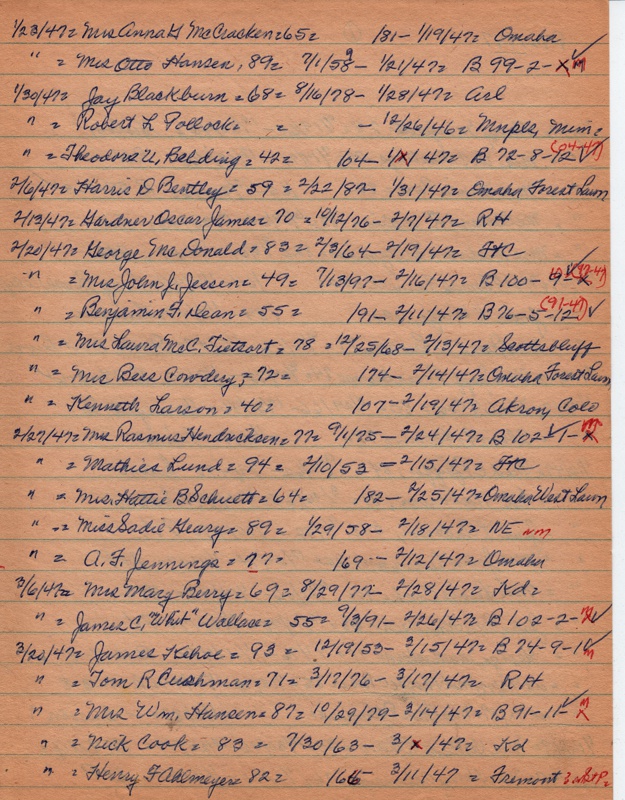 1/23/47= Mrs Anna G McCracken=65= /81- 1/19/47= Omaha
" = Mrs Otto Hansen, 89= 7/1/58- 1/21/47= B 99-2-x m
1/30/47= Jay Blackburn=68= 8/16/78- 1/28/47= Arl
" = Robert L Pollock= - 12/26/46= Mnpls, Minn=
" = Theodora U, Belding=42= /04- 1/x/47= B 72-8-12 (04-47)
2/6/47= Harris D Bentley= 59 = 2/22/87- 1/31/47= Omaha Forest Lawn
2/13/47= Gardner Oscar James= 70 = 10/12/76- 2/7/47= RH
2/20/47= George McDonald= 83= 2/3/64- 2/19/47= FtC
" = Mrs John J, Jessen= 49= 7/13/97- 2/16/47= B 100-9-
" = Benjamin F, Dean= 55= /91- 2/11/47= B 76-5-12 (91-47)
" = Mrs Laura McC, Tietsort= 78 =12/25/68- 2/13/47= Scottsbluff
" = Mrs Bess Cowdery,=72= /74- 2/14/47= Omaha Forest Lawn
" = Kenneth Larson= 40= /07- 2/19/47= Akron, Colo
2/27/47= Mrs Rasmus Hendricksen=71= 9/1/75- 2/24/47= B 102-1- m
" = Mathies Lund= 94= 2/10/53 = 2/15/47= FtC
" = Mrs, Hattie B Schuett=64= /82- 2/25/47= Omaha West Lawn
" = Miss Sadie Geary= 89= 1/29/58- 2/18/47= NE nm
" = A. F. Jennings= 77= /69- 2/12/47= Omaha
3/6/47= Mrs Mary Berry= 69= 8/29/77- 2/28/47= Kd=
" = James C, "Whit" Wallace= 55= 9/3/91- 2/26/47= B 102-2- m
3/20/47= James Kehoe= 93= 12/19/53- 3/15/47= B 74-9-11 m
" = Tom R Cushman=71= 3/17/76- 3/17/47= RH
" = Mrs Wm, Hansen=87= 10/29/79- 3/14/47= B 91-11- m
" = Nick Cook= 83 = 7/30/63- 3/x/47= Kd
" = Henry F Ahlmeyer= 82= /65 3/11/47 = Fremont